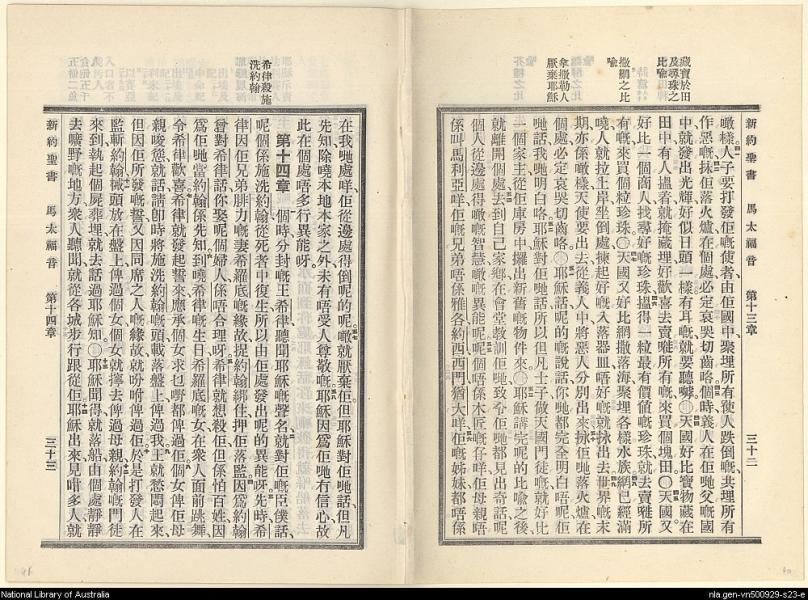 藏寶於田
及尋珠之
比喻
撒網之比
喻
拿撒勒人
厭棄耶穌
新約聖書 馬太福音 第十三章 三十二
噉樣人子要打發佢嘅使者由佢國中聚埋所有使人跌倒嘅共埋所有
作惡嘅抹佢落火爐在個處必定哀哭切齒咯個時義人在佢哋父嘅國
中就發出光輝好似日頭一樣有耳嘅就要聽嚹〇天國好比寶物藏在
田中有人搵着就掩藏埋好歡喜去賣嗮所有嘅來買個塊田〇天國又
好比一個商人找尋好嘅珍珠搵得一粒最有價值嘅珍珠就去賣嗮所
有嘅來買個粒珍珠〇天國又好比網撒落海聚埋各樣水族網已經滿
嘵人就拉上岸坐倒處揀起好嘅入落器皿唔好嘅就捒出去世界嘅末
期亦係噉樣天使要出去從義人中將惡人分別出來捒佢哋落火爐在
個處必定哀哭切齒咯〇耶穌話呢的嘅說話你哋都完全明白唔呢佢
哋話我哋明白咯耶穌對佢哋話所以但凡士子做天國門徒嘅就好比
一個家主從佢庫房中攞出新舊嘅物件來〇耶穌講完呢的比喻之後
就離開個處去到自己家鄉在會堂教訓佢哋致令佢哋都見出奇話呢
個人從邊處得噉嘅智慧噉嘅異能呢呢個唔係木匠嘅仔咩佢母親唔
係叫馬利亞咩佢嘅兄弟唔係雅各約西西門猶大咩佢嘅姊妹都唔係
希律殺施
洗約翰
在我哋處咩佢從邊處得倒呢的呢噉就厭棄佢但耶穌對佢哋話但凡
先知除嘵本地本家之外未有唔受人尊敬嘅耶穌因爲佢哋有信心故
此在個處唔多行異能呀
第十四章 個時分封嘅王希律聽聞耶穌嘅聲名就對佢嘅臣僕話
呢個係施洗約翰從死者中復生所以由佢處發出呢的異能呀先時希
律因佢兄弟腓力嘅妻希羅底嘅緣故捉約翰綁住押佢落監因爲約翰
曾對希律話你娶呢個婦人係唔合理呀希律就想殺佢但係怕百姓因
爲佢哋當約翰係先知到嘵希律嘅生日希羅底嘅女在衆人面前跳舞
令希律歡喜希律就發起誓來應承個女求乜嘢都俾過佢個女俾佢母
親唆慫就話請卽時將施洗約翰嘅頭載落盤上俾過我王就愁悶起來
但因佢所發嘅誓又因同席之人嘅緣故就吩咐俾過佢於是打發人在
監斬約翰㨢頭放在盤上俾過個女個女就擰去俾過母親約翰嘅門徒
來到執起個屍葬埋就去話過耶穌知〇耶穌聞得就落船由個處靜靜
去曠野嘅地方衆人聽聞就從各城步行跟從佢耶穌出來見咁多人就
新約聖書 馬太福音 第十四章 三十三
National Library of Australia
nla.gen-vn500929-s23-e